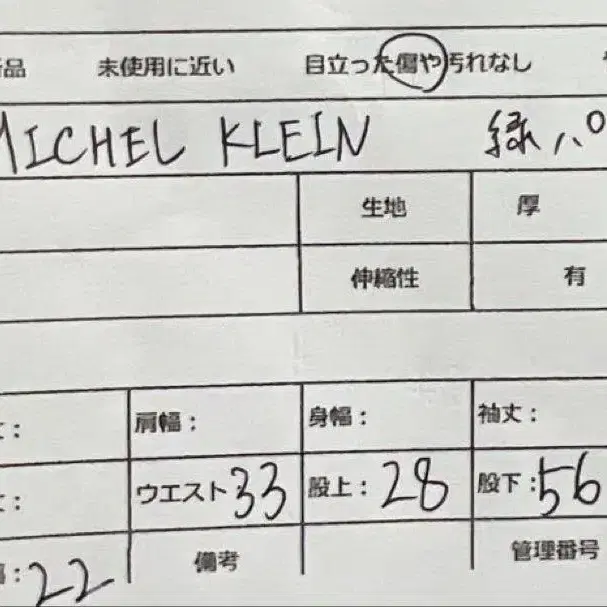 品 未使用に近い 目立った傷や汚れなし
MICHEL KLEIN 緑パ
生地 厚
伸縮性 有
: 肩幅: 身幅: 袖丈:
: ウエスト 33 股上: 28 股下: 56
: 22 備考 管理番号